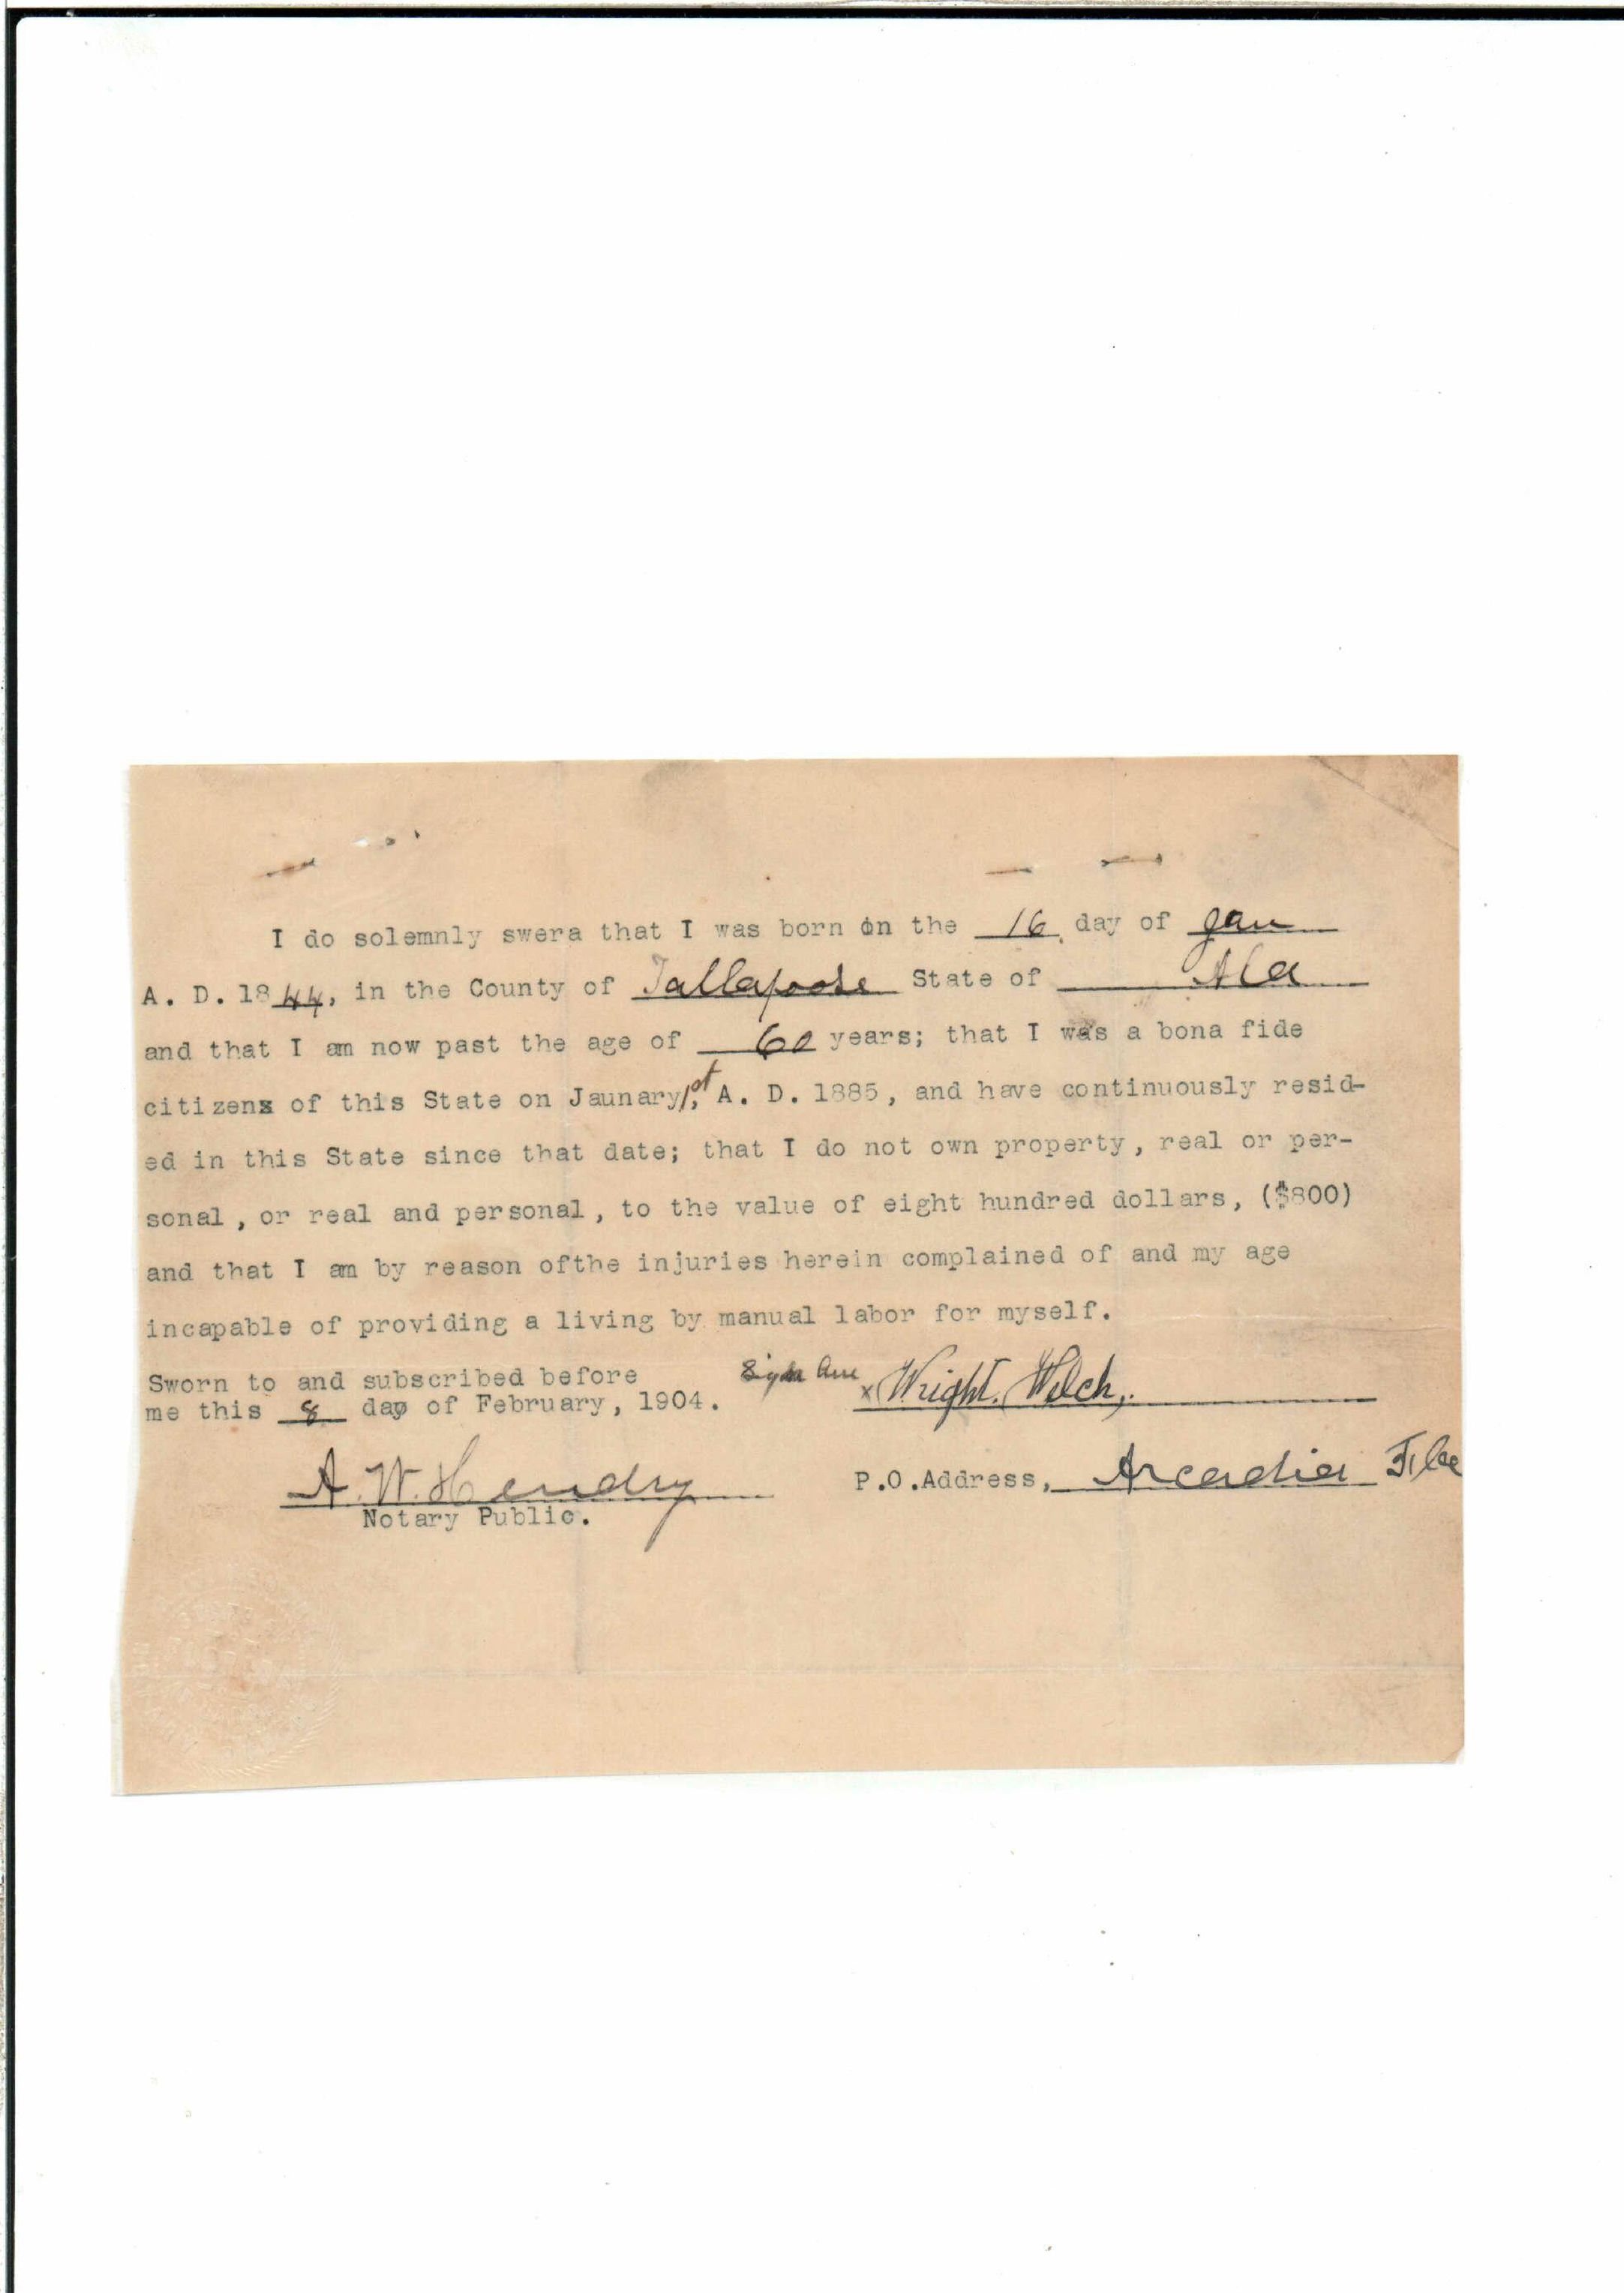 I do solemnly swera that I was born on the 16 day of Jan
A. D. 1844, in the County of Tallapoose State of Ala
and that I am now past the age of 60 years; that I was a bona fide
citizens of this State on Jaunary 1st, A. D. 1885, and have continuously resid-
ed in this State since that date; that I do not own property, real or per-
sonal, or real and personal, to the value of eight hundred dollars, ($800)
and that I am by reason ofthe injuries herein complained of and my age
incapable of providing a living by manual labor for myself.
Sworn to and subscribed before
me this 8 day of February, 1904.
Sign x Wright. Welch,.
A. W. Hendry
Notary Public.
P.O.Address, Arcadia Fla